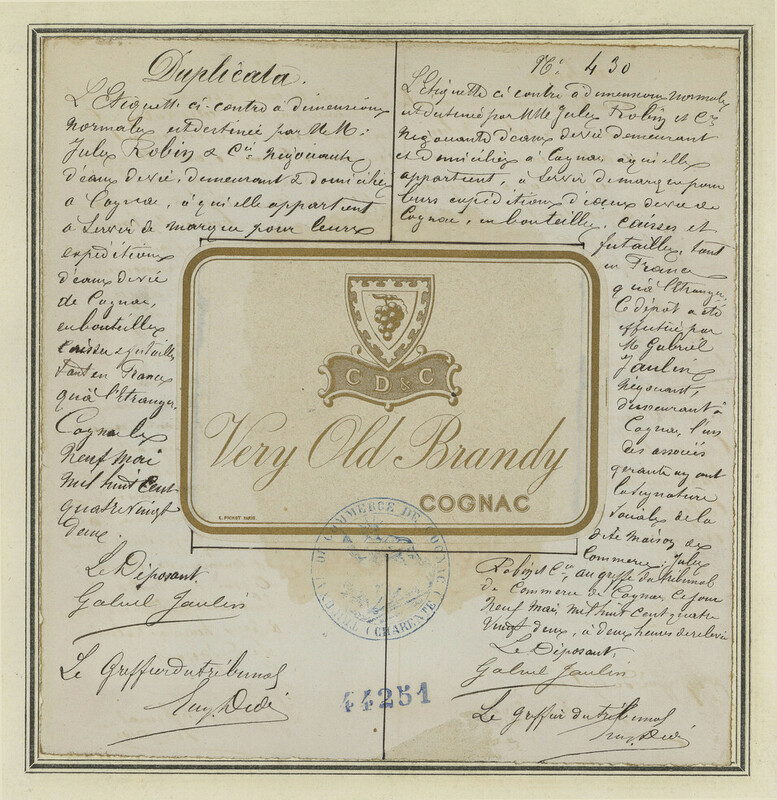 Duplicata.
L'Etiquette ci-contre a dimensions
normales est destinée par M M.
Jules Robin & Cie négociants
d'eaux de vie, demeurant & domiciliés
à Cognac, à qui elle appartient
à servir de marque pour leurs
expéditions
d'eaux de vie
de Cognac,
en bouteilles
caisses & futailles
tant en France
qu'à l'Etranger.
Cognac le
neuf mai
mil huit cent
quatre vingt
deux.
Le Déposant.
Gabriel Jaulin
Le Greffier du tribunal
No. 430
L'étiquette ci contre a dimensions normales
est destinée par M M Jules Robin et Cie
négociants d'eaux de vie demeurant
et domiciliés à Cognac, à qui elle
appartient, à servir de marque pour
leurs expéditions d'eaux de vie de
Cognac, en bouteilles, caisses et
futailles, tant
en France
qu'à l'étranger.
Ce dépôt a été
effectué par
M Gabriel
Jaulin
négociant,
demeurant à
Cognac, l'un
des associés
gérants ayant
la signature
sociale de la
dite maison de
Commerce Jules
Robin et Cie, au greffe du tribunal
de Commerce de Cognac, ce jour
neuf mai mil huit cent quatre
vingt deux, à deux heures de relevée
Le Déposant.
Gabriel Jaulin
Le Greffier du tribunal
C D & C
Very Old Brandy
COGNAC
TRIBUNAL DE COMMERCE DE COGNAC
(CHARENTE)
44251